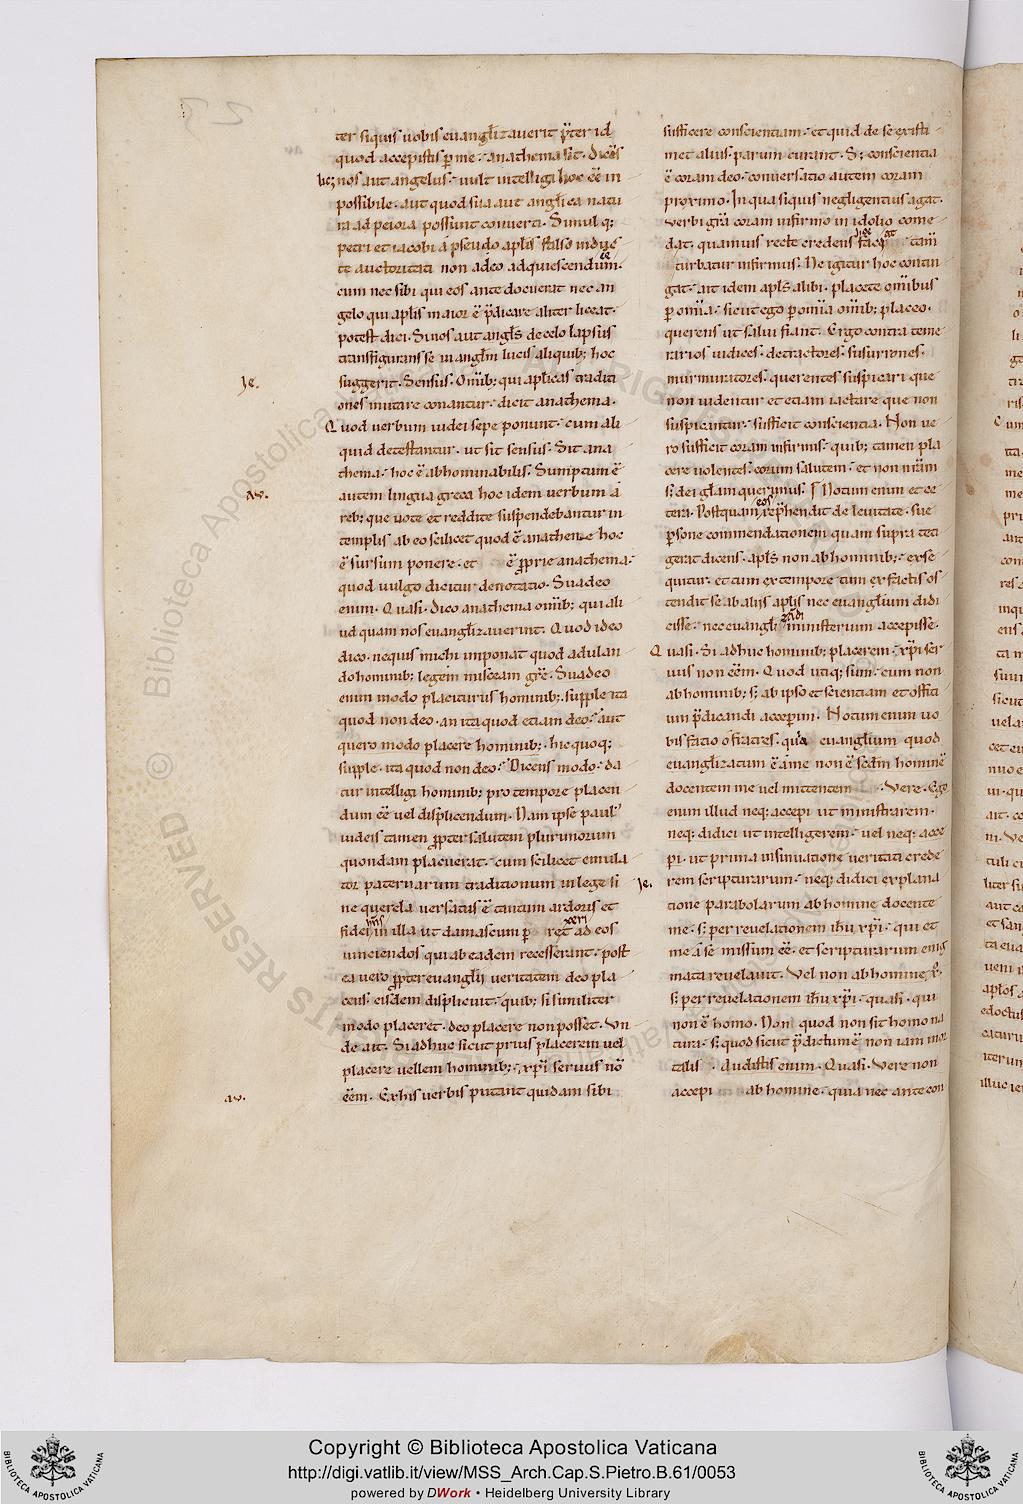 ter siquis uobis euangl̄izauerit p̄ter id
quod accepistis p me. anathema sit. Dicēs
nos aut angelus. uult intelligi hoc ēē in
possibile. aut quod sua aut anglica natu
ra ad peiora possunt conuerti. Simul q;
petri et iacobi a pseudo apl̄is falso induc
te auctoritati non adeo adquiescendum.
cum nec sibi qui eos ante docuerat nec an
gelo qui apl̄is maior ē p̄dicare aliter liceat.
potest dici. Si nos aut angl̄s de celo lapsus
transfigurans se in angl̄m lucis aliquib; hoc
suggerit. Sensus. Om̄ib; qui apl̄icas traditi
ones mutare conantur. dicit anathema.
Quod uerbum iudei sepe ponunt. cum ali
quid detestantur. ut sit sensus. Sit ana
thema. hoc ē abhominabilis. Sumptum ē
autem lingua greca hoc idem uerbum a
reb; que uote et reddite suspendebantur in
templis ab eo scilicet quod ē anathene hoc
ē sursum ponere. et ē p̄prie anathema.
quod uulgo dicitur deuotatio. Suadeo
enim. Quasi. Dico anathema om̄ib; qui ali
ud quam nos euangl̄izauerint. Quod ideo
dico. nequis michi imponat quod adulan
do hominib; legem misceam gr̄e. Suadeo
enim modo placiturus hominib;. supple ita
quod non deo. an ita quod etiam deo. aut
quero modo placere hominib;. hic quoq;
supple. ita quod non deo. Dicens modo. da
tur intelligi hominib; pro tempore placen
dum ēē uel displicendum. Nam ipse paul'
iudeis tamen p̄pter salutem plurimorum
quondam placuerat. cum scilicet emula
tor paternarum traditionum in lege si
ne querela uersatus ē tantum ardoris et
fidei in illa ut damascum p ret ad eos
uinciendos qui ab eadem recesserant. post
ea uero p̄pter euanglii ueritatem deo pla
cens. eisdem displicuit. quib; si similiter
modo placeret. deo placere non posset. Vn
de ait. Si adhuc sicut prius placerem uel
placere uellem hominib;. xp̄i seruus nō
ēēm. Ex his uerbis putant quidam sibi
be;
Je.
av.
av.
sufficere conscientiam. et quid de se existi
met alius. parum curant. S; conscientia
ē coram deo. conuersatio autem coram
proximo. In qua siquis negligentius agat.
uerbi gr̄a coram infirmo in idolio come
dat. quamuis recte credens faciat. tam̄
turbatur infirmus. Ne igitur hoc contin
gat. ait idem apl̄s alibi. placete om̄ibus
p om̄ia. sicut ego p om̄ia om̄ib; placeo.
querens ut salui fiant. Ergo contra teme
rarios iudices. detractores. susurrones.
murmuratores. querentes suspicari que
non uidentur et etiam iactare que non
suspicantur. sufficit conscientia. Non ue
ro sufficit coram infirmis. quib; tamen pla
cere uolentes. eorum salutem. et non nr̄am
s; dei gl̄am querimus. Notum enim et ce
tera. Postquam eos rep̄hendit de leuitate. sue
p̄sone commendationem quam supra teti
gerat dicens. apl̄s non ab hominib;. exse
quitur. et cum ex tempore tum ex factis os
tendit se ab aliis apl̄is nec euanglium didi
cisse. nec euangl̄izandi ministerium accepisse.
Quasi. Si adhuc hominib; placerem. xp̄i ser
uus non ēēm. Quod utiq; sum. cum non
ab hominib; s; ab ipso et scientiam et offici
um p̄dicandi acceperim. Notum enim uo
bis facio o fratres. quia euanglium quod
euangl̄izatum ē a me non ē sed̄m hominē
docentem me uel mittentem. Vere. Ego
enim illud neq; accepi ut ministrarem.
neq; didici ut intelligerem. uel neq; acce
pi. ut prima insinuatione ueritati crede
rem scripturarum. neq; didici explana
tione parabolarum ab homine docente
me. s; per reuelationem ih̄u xp̄i. qui et
me a se missum ēē. et scripturarum enig
mata reuelauit. Vel non ab homine
s; per reuelationem ih̄u xp̄i. quasi. qui
non ē homo. Non quod non sit homo na
tura. s; quod sicut p̄dictum ē non iam mor
talis. Audistis enim. Quasi. Vere non
accepi ab homine. quia nec ante con
Je.
Copyright © Biblioteca Apostolica Vaticana
http://digi.vatlib.it/view/MSS_Arch.Cap.S.Pietro.B.61/0053
powered by DWork • Heidelberg University Library